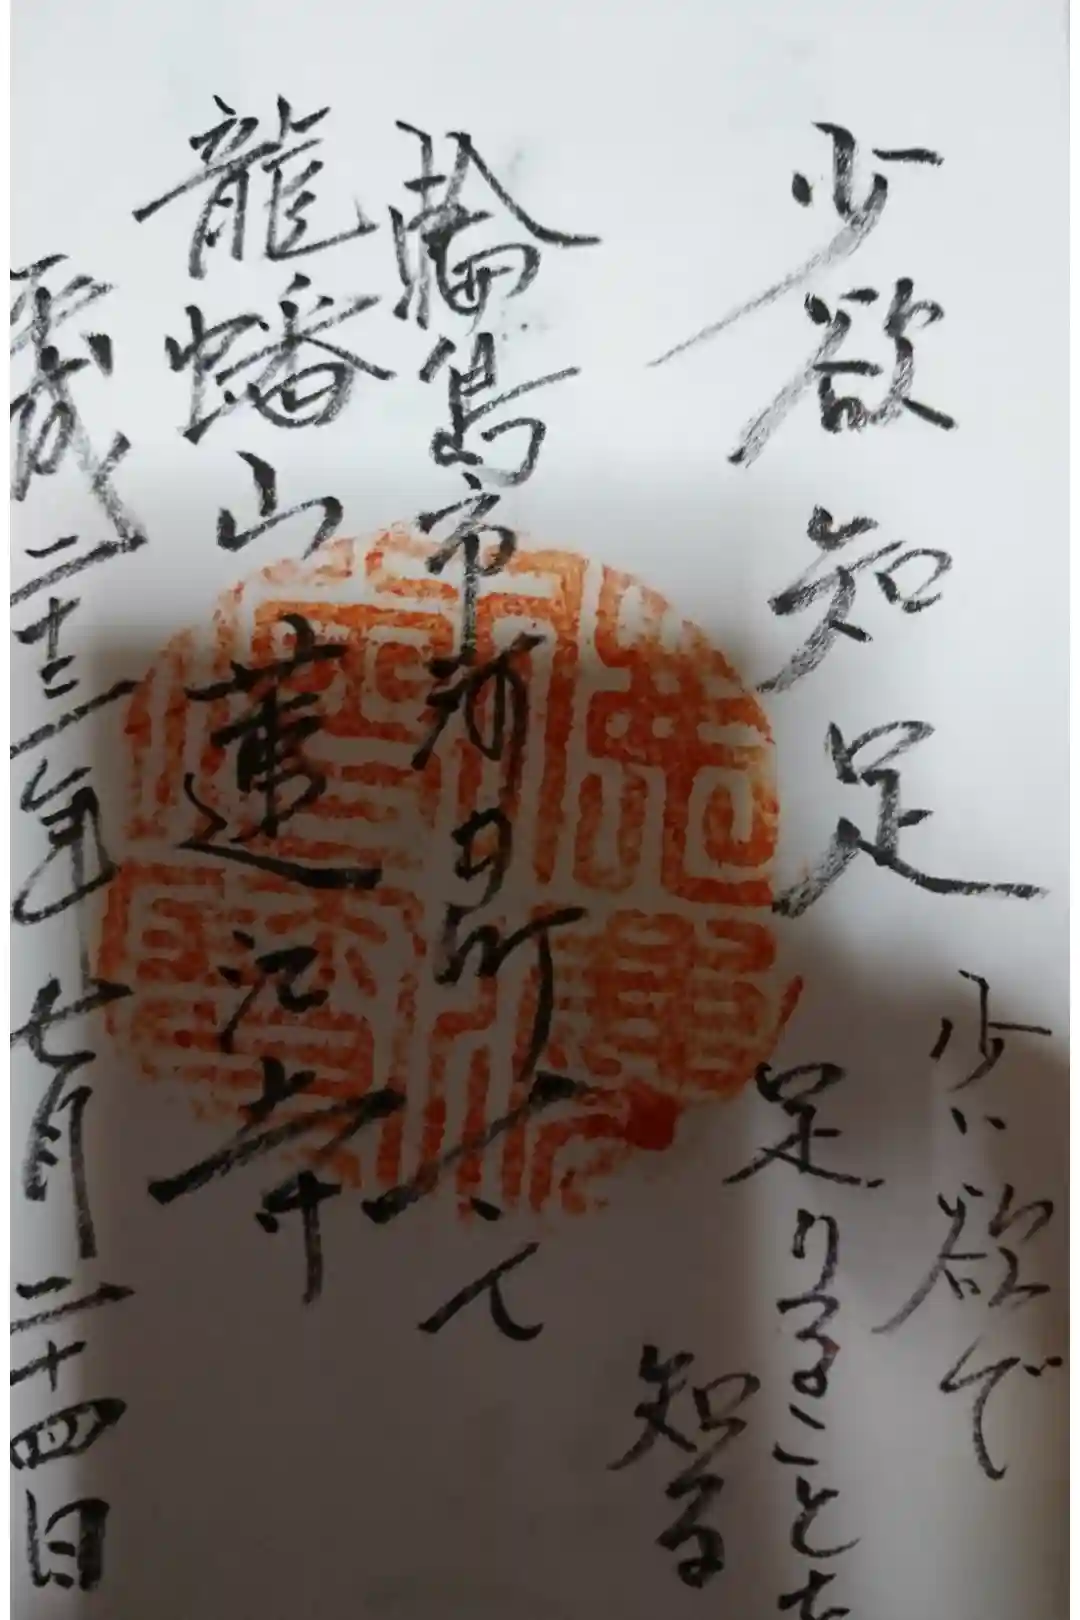 少欲知足
少い欲で
足りることを
知る
輪島市河井町六ノ八
龍蟠山蓮江寺
平成二十三年七月二十四日